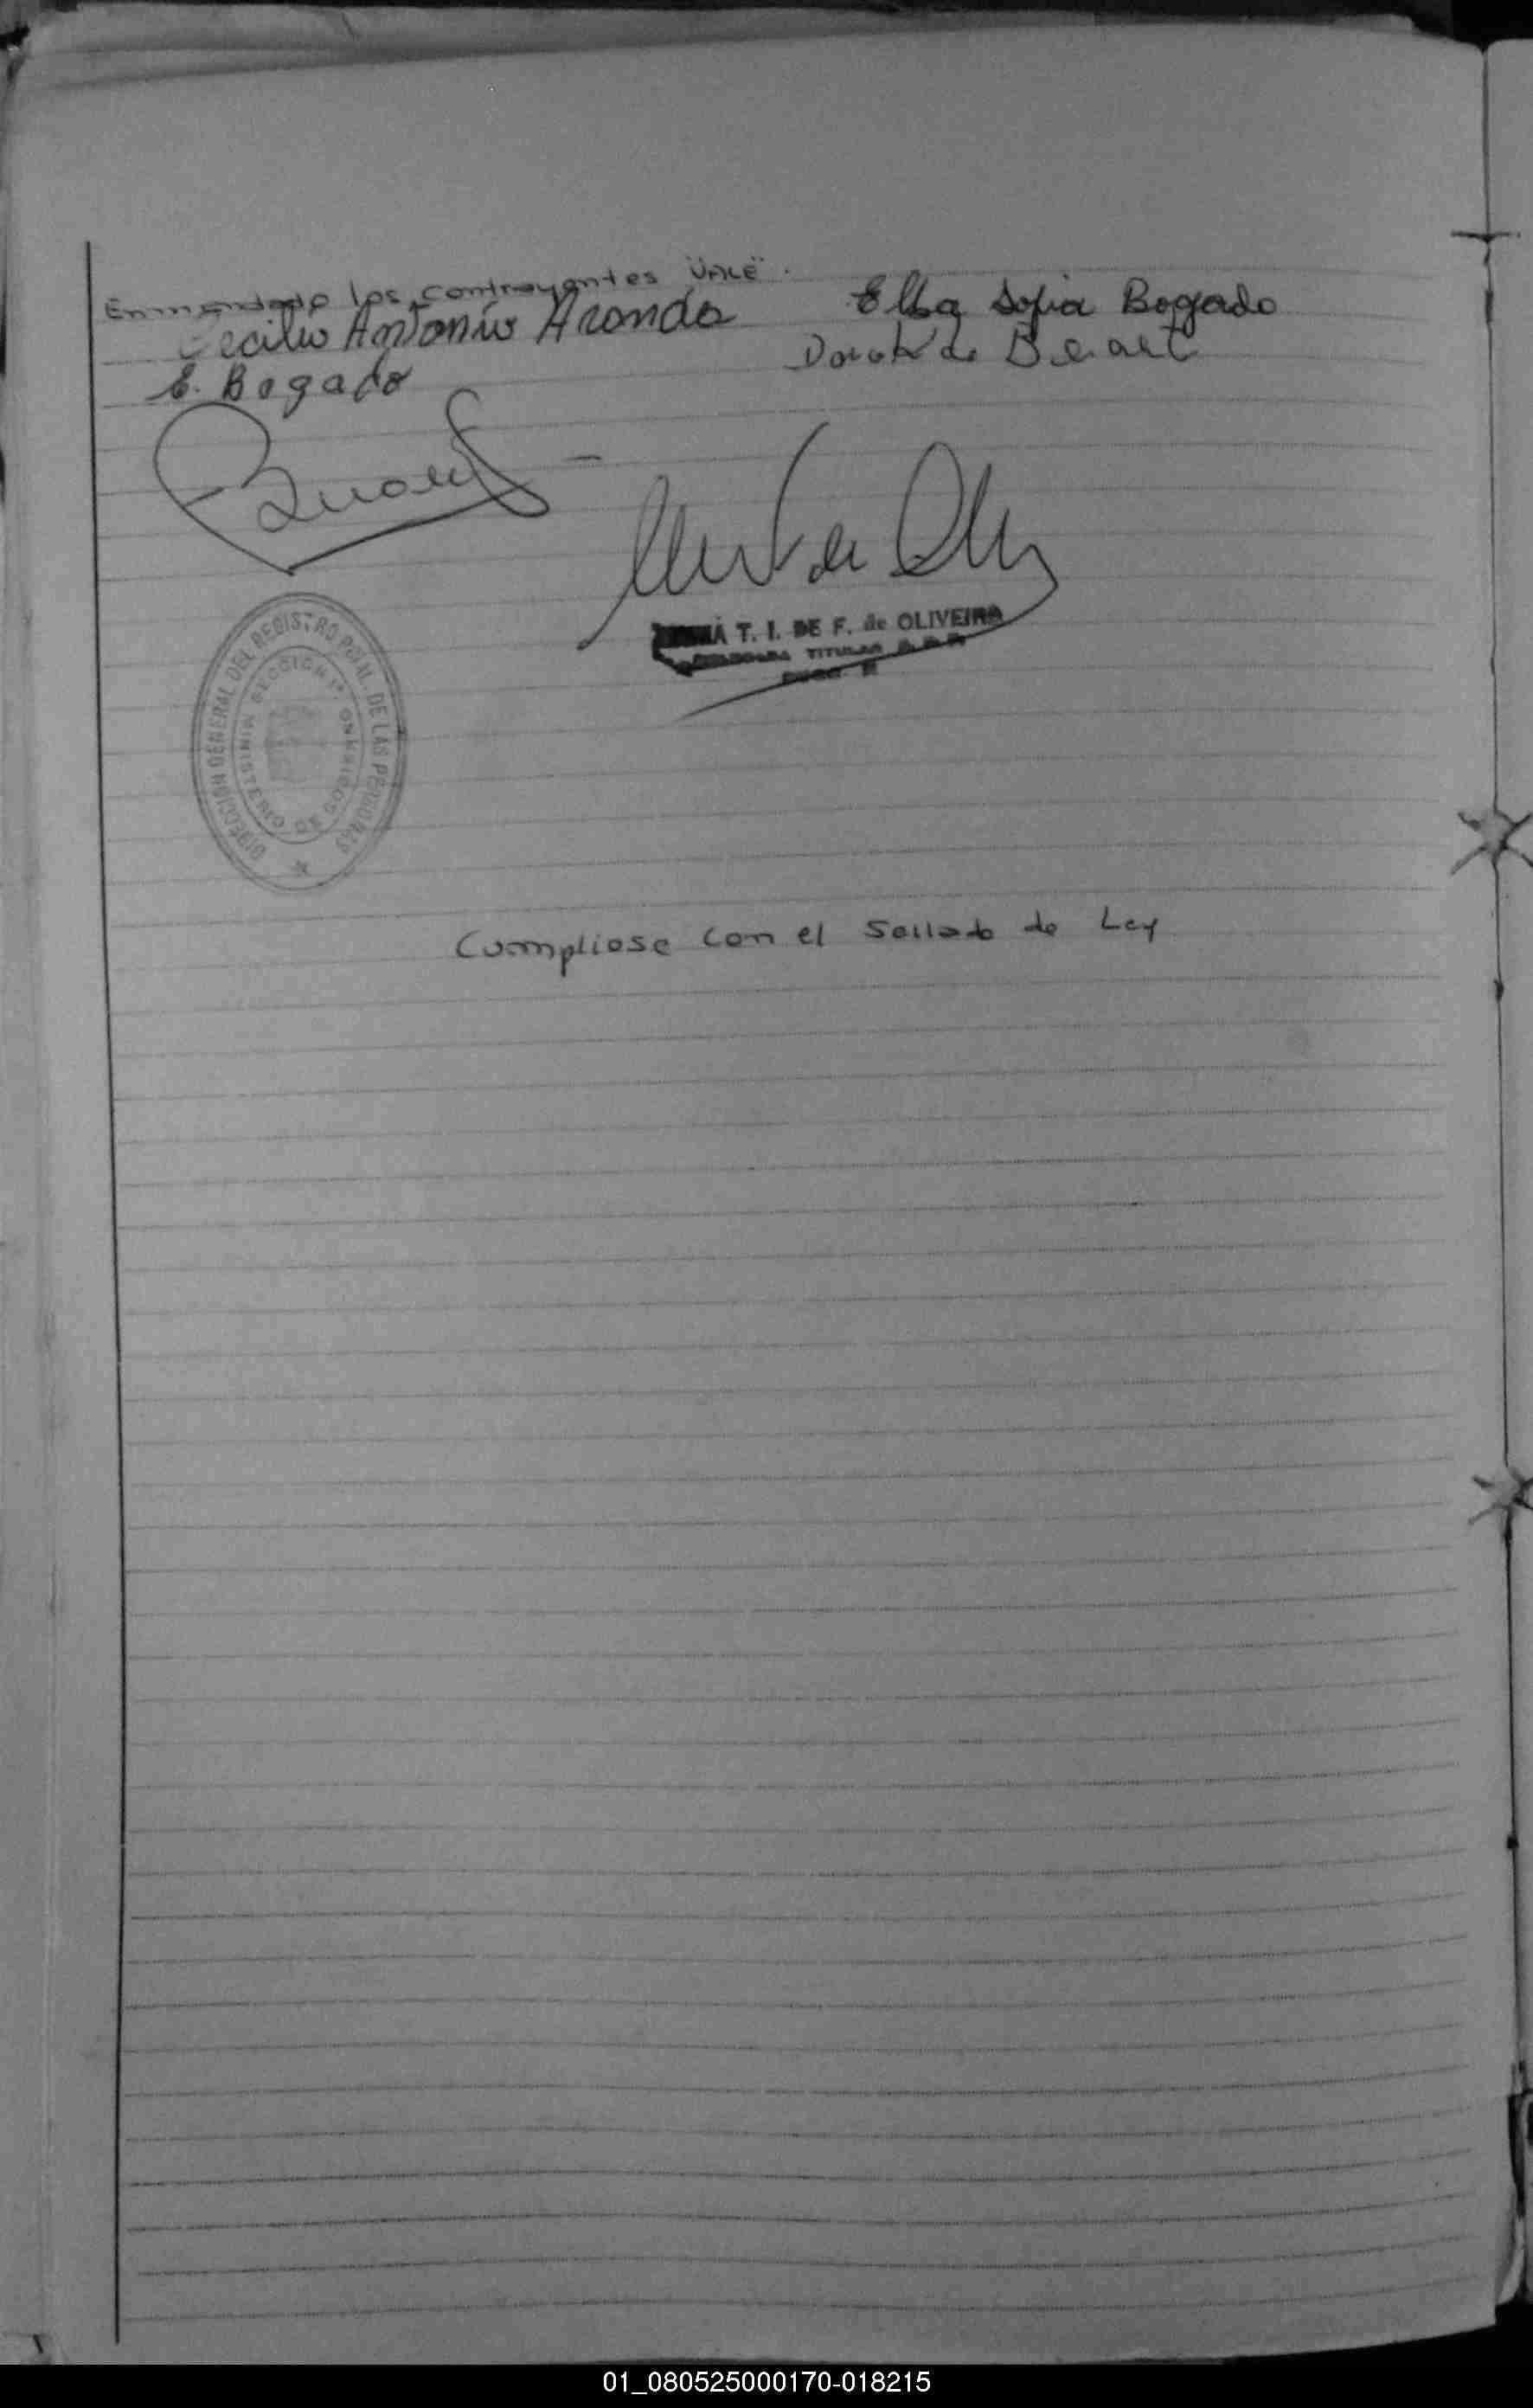 Enmendado los contrayentes VALE.
Cecilio Antonio Aranda
Elba Sofia Bogado
E. Bogado
T. I. DE F. de OLIVEIRA
TITULAR
DIRECCION GENERAL DEL REGISTRO PCIAL. DE LAS PERSONAS
MINISTERIO DE GOBIERNO
SECCION
Cumpliose con el sellado de Ley
01_080525000170-018215